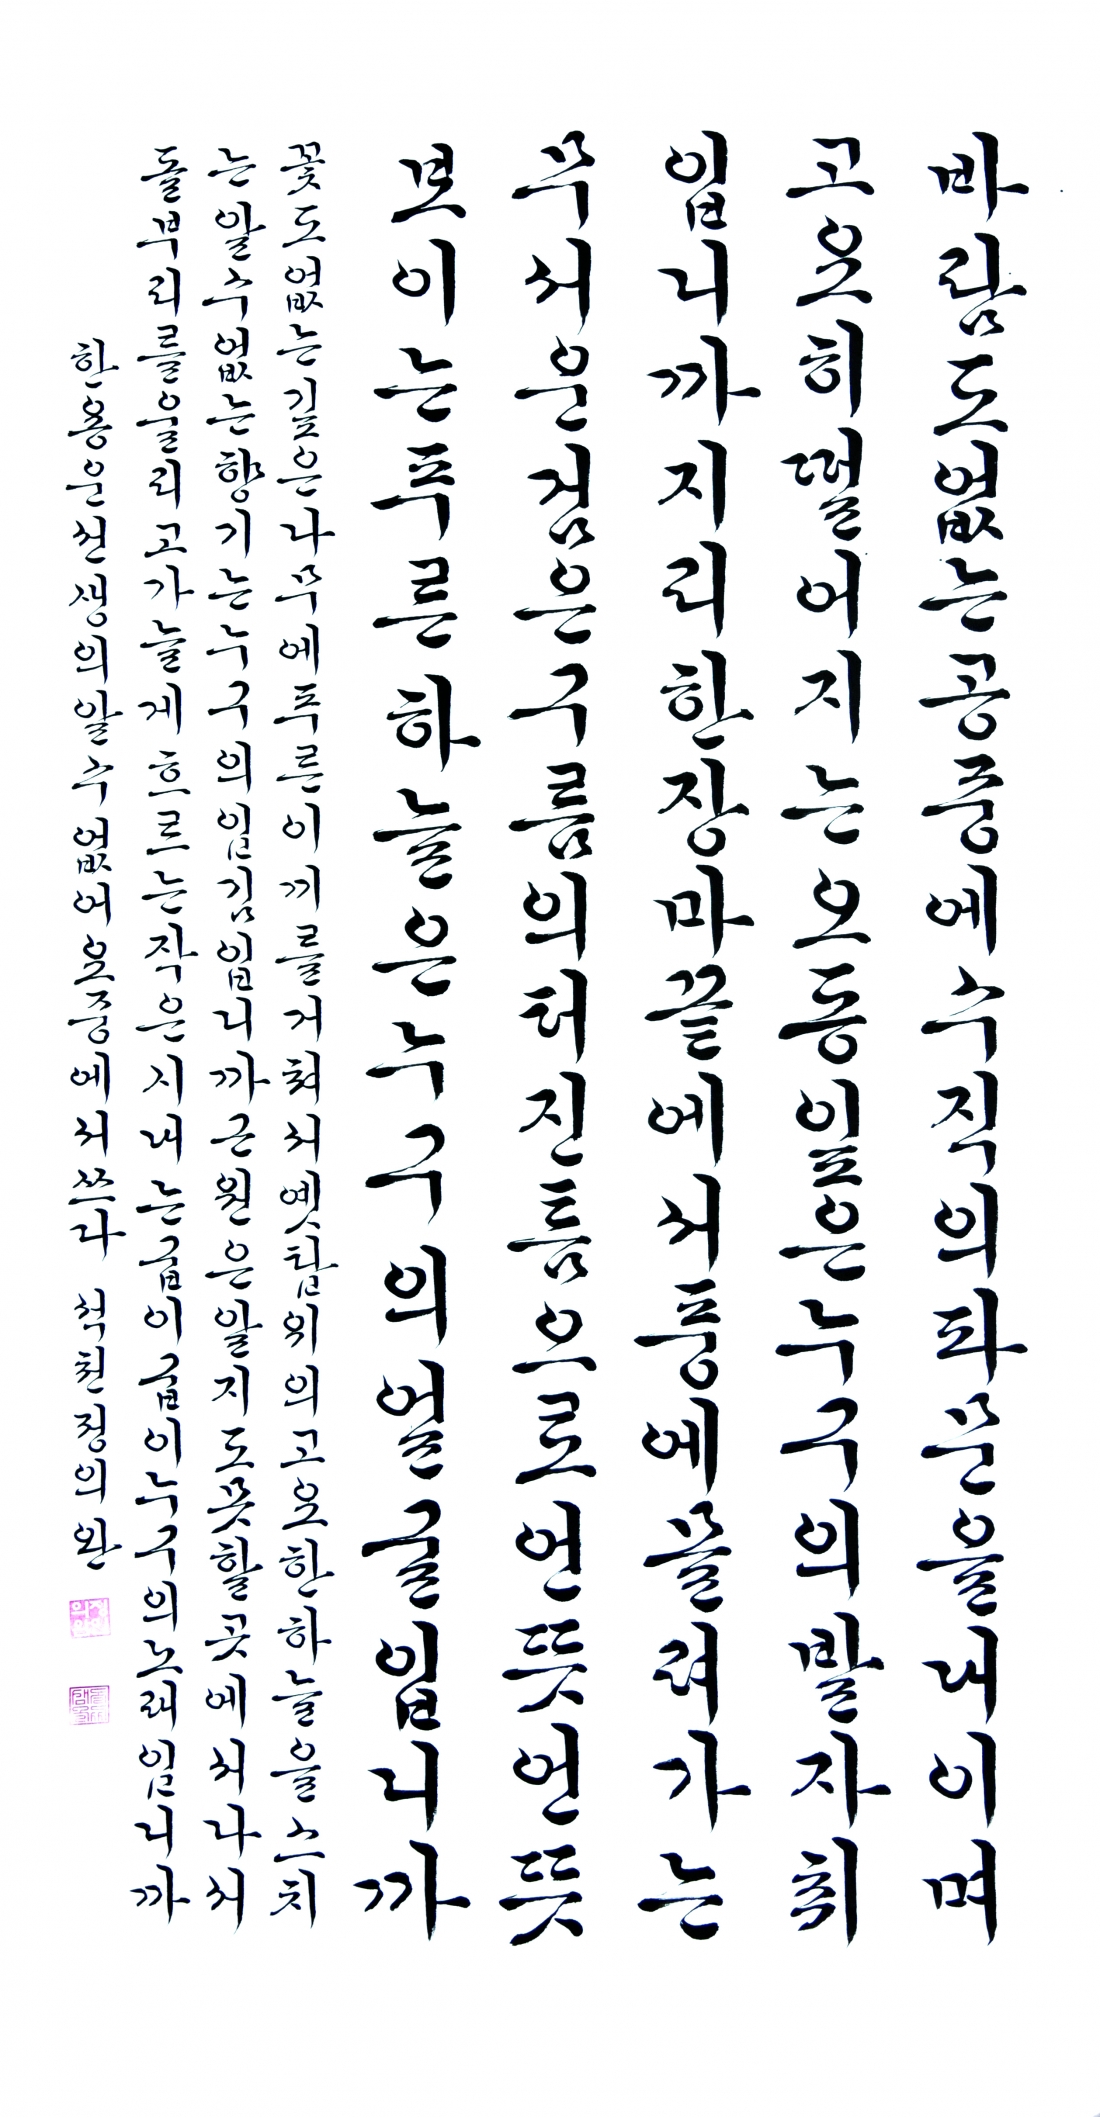 바람도없는공중에수직의파문을내이며
고요히떨어지는오동잎은누구의발자취
입니까지리한장마끝에서풍에몰려가는
무서운검은구름의터진틈으로언뜻언뜻
보이는푸른하늘은누구의얼굴입니까
꽃도없는깊은나무에푸른이끼를거쳐서옛탑위의고요한하늘을스치
는알수없는향기는누구의입김입니까근원은알지도못할곳에서나서
돌부리를울리고가늘게흐르는작은시내는굽이굽이누구의노래입니까
한용운선생의알수없어요중에서쓰다 석천정의완